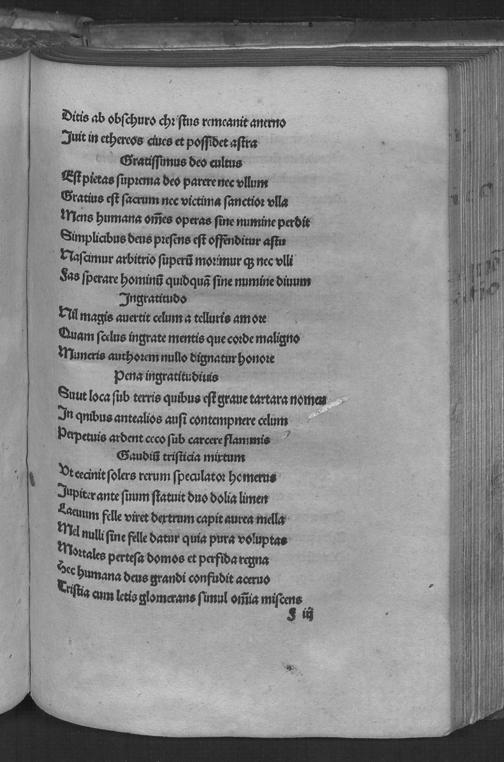 Ditis ab obschuro chr̄stus remeanit anerno
Iuit in ethereos ciues et possidet astra
Gratissimus deo cultus
Est pietas suprema deo parere nec vllum
Gratius est sacrum nec victima sanctior vlla
Mens humana om̄es operas sine numine perdit
Simplicibus deus presens est offenditur astu
Nascimur arbitrio superū morimur qꝫ nec vlli
Fas sperare hominū quidquā sine numine diuum
Ingratitudo
Nil magis auertit celum a telluris amore
Quam scelus ingrate mentis que corde maligno
Muneris authorem nullo dignatur honore
Pena ingratitudiuis
Suut loca sub terris quibus est graue tartara nomen
In quibus antealios ausi contempnere celum
Perpetuis ardent ceco sub carcere flammis
Gaudiū tristicia mixtum
Vt cecinit solers rerum speculator homerus
Iupiter ante suum statuit duo dolia limen
Laeuum felle viret dextrum capit aurea mella
Mel nulli sine felle datur quia pura voluptas
Mortales pertesa domos et perfida regna
Hec humana deus grandi confudit aceruo
Tristia cum letis glomerans simul om̄ia miscens
f iiij